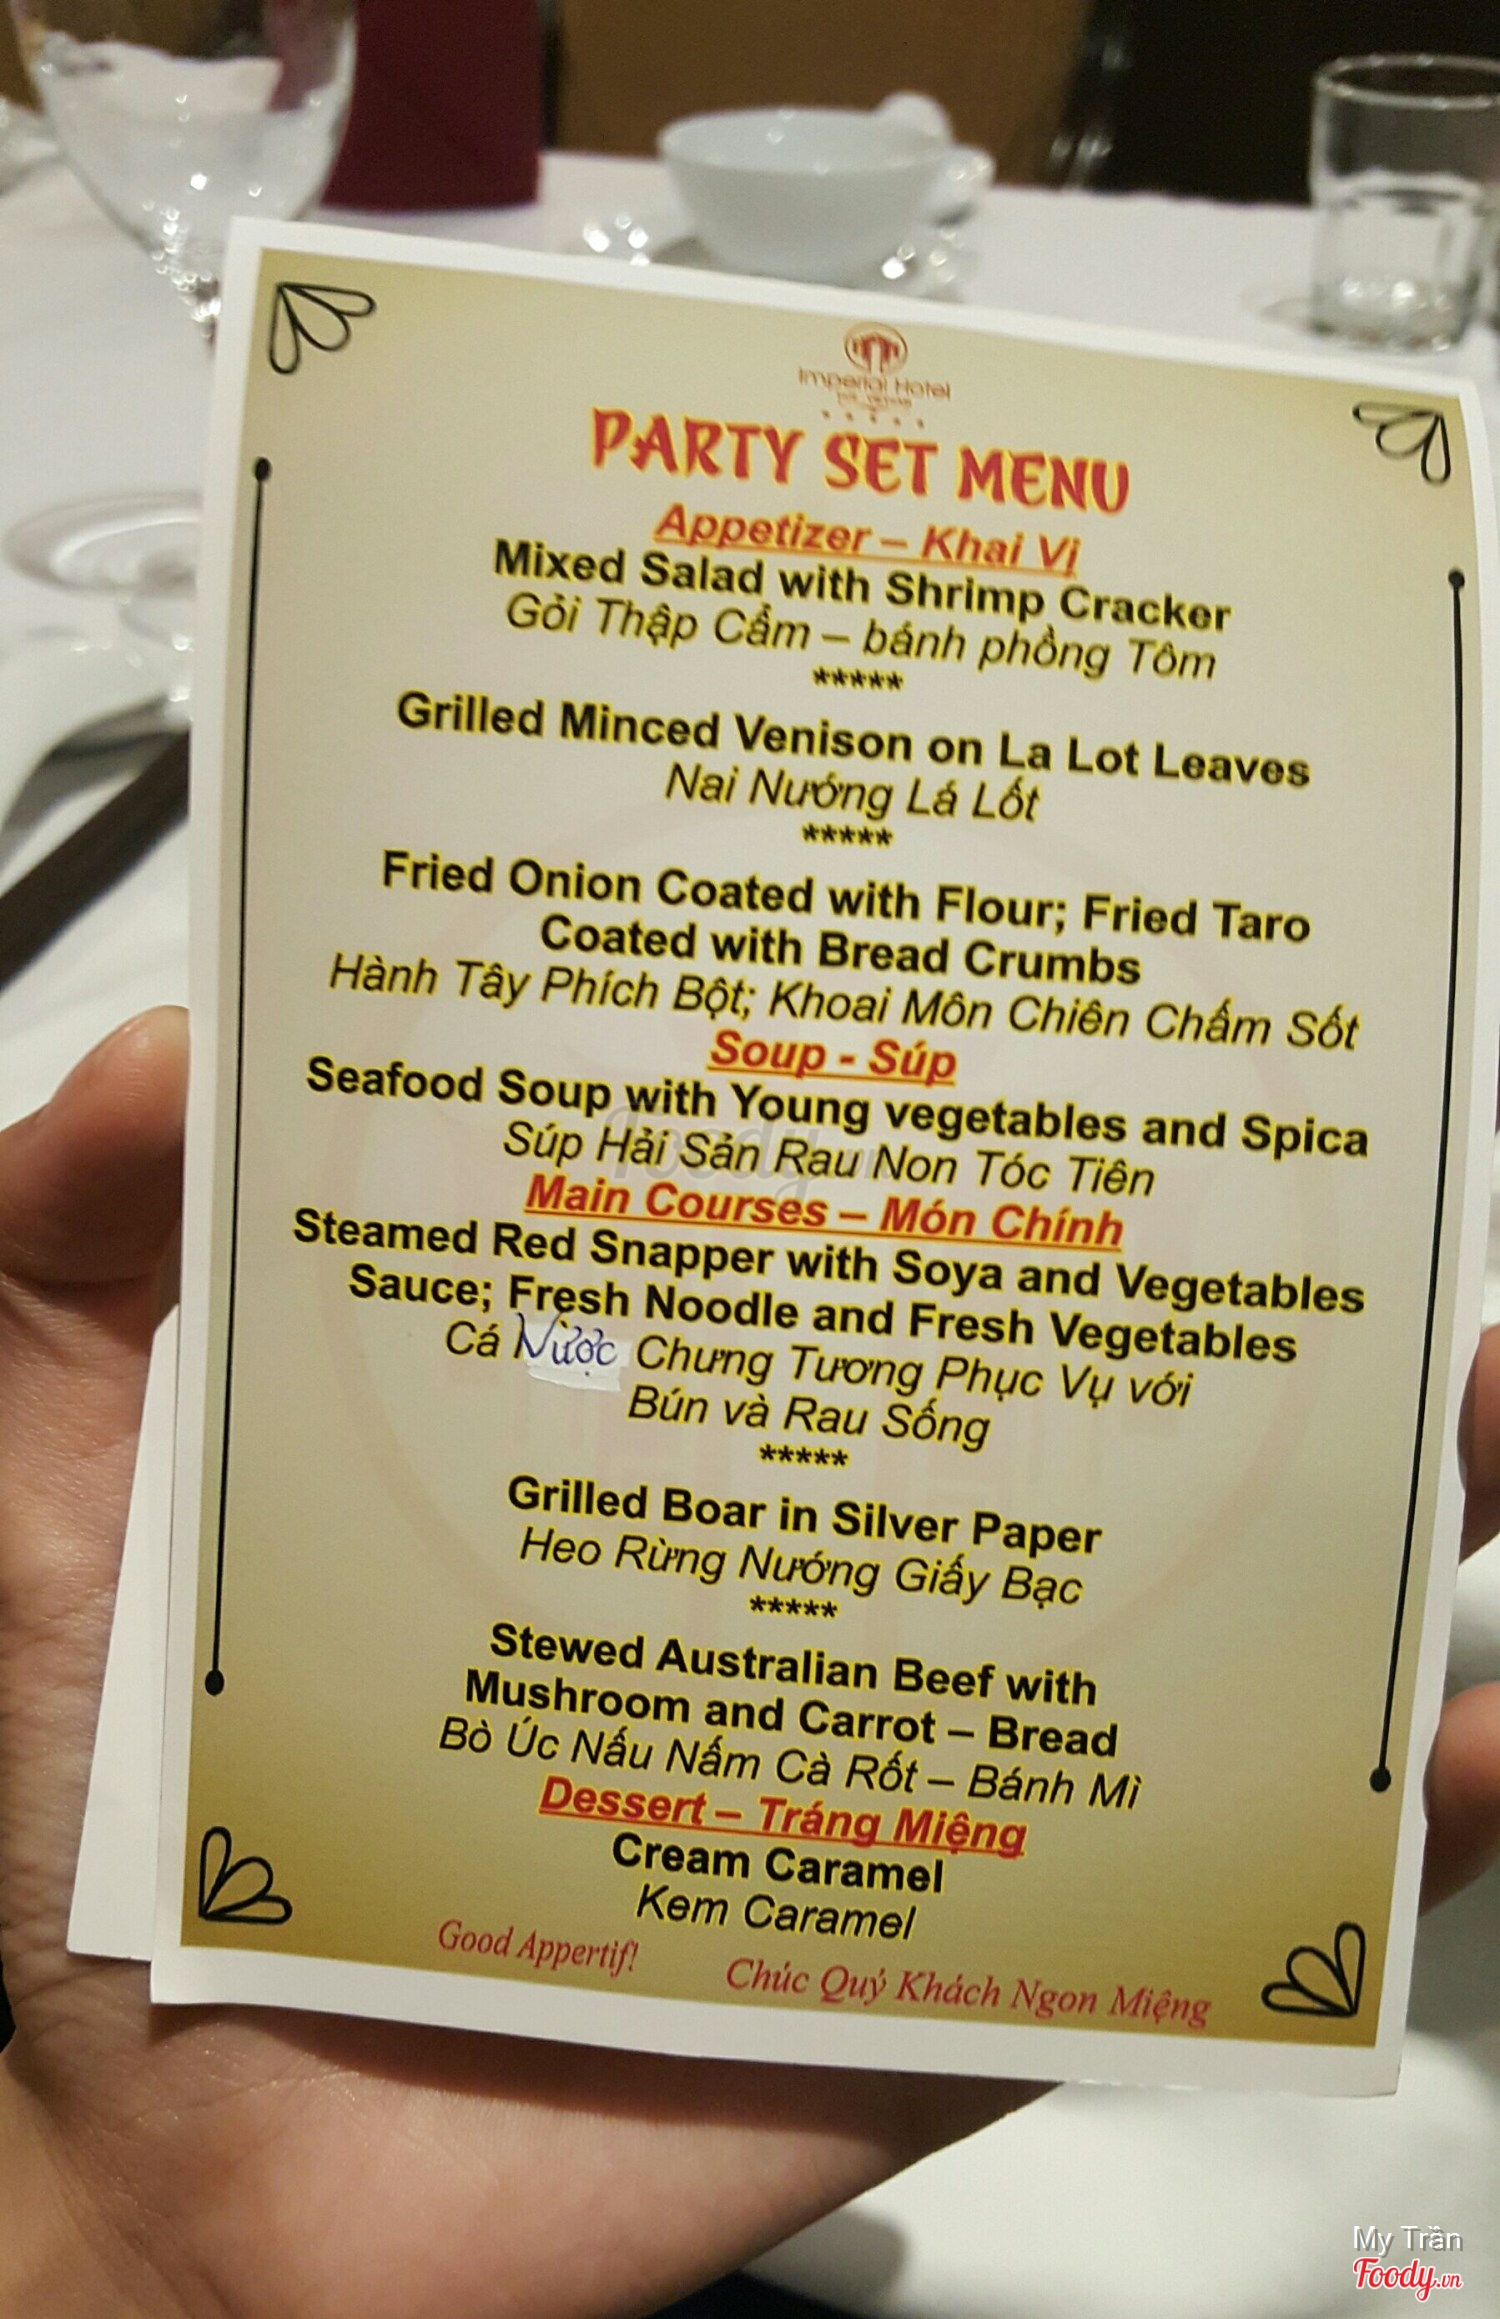 Imperial Hotel
PARTY SET MENU
Appetizer – Khai Vị
Mixed Salad with Shrimp Cracker
Gỏi Thập Cẩm – bánh phồng Tôm
*****
Grilled Minced Venison on La Lot Leaves
Nai Nướng Lá Lốt
*****
Fried Onion Coated with Flour; Fried Taro
Coated with Bread Crumbs
Hành Tây Phích Bột; Khoai Môn Chiên Chấm Sốt
Soup - Súp
Seafood Soup with Young vegetables and Spica
Súp Hải Sản Rau Non Tóc Tiên
Main Courses – Món Chính
Steamed Red Snapper with Soya and Vegetables
Sauce; Fresh Noodle and Fresh Vegetables
Cá Nược Chưng Tương Phục Vụ với
Bún và Rau Sống
*****
Grilled Boar in Silver Paper
Heo Rừng Nướng Giấy Bạc
*****
Stewed Australian Beef with
Mushroom and Carrot – Bread
Bò Úc Nấu Nấm Cà Rốt – Bánh Mì
Dessert – Tráng Miệng
Cream Caramel
Kem Caramel
Good Appertif! Chúc Quý Khách Ngon Miệng
My Trần
Foody.vn